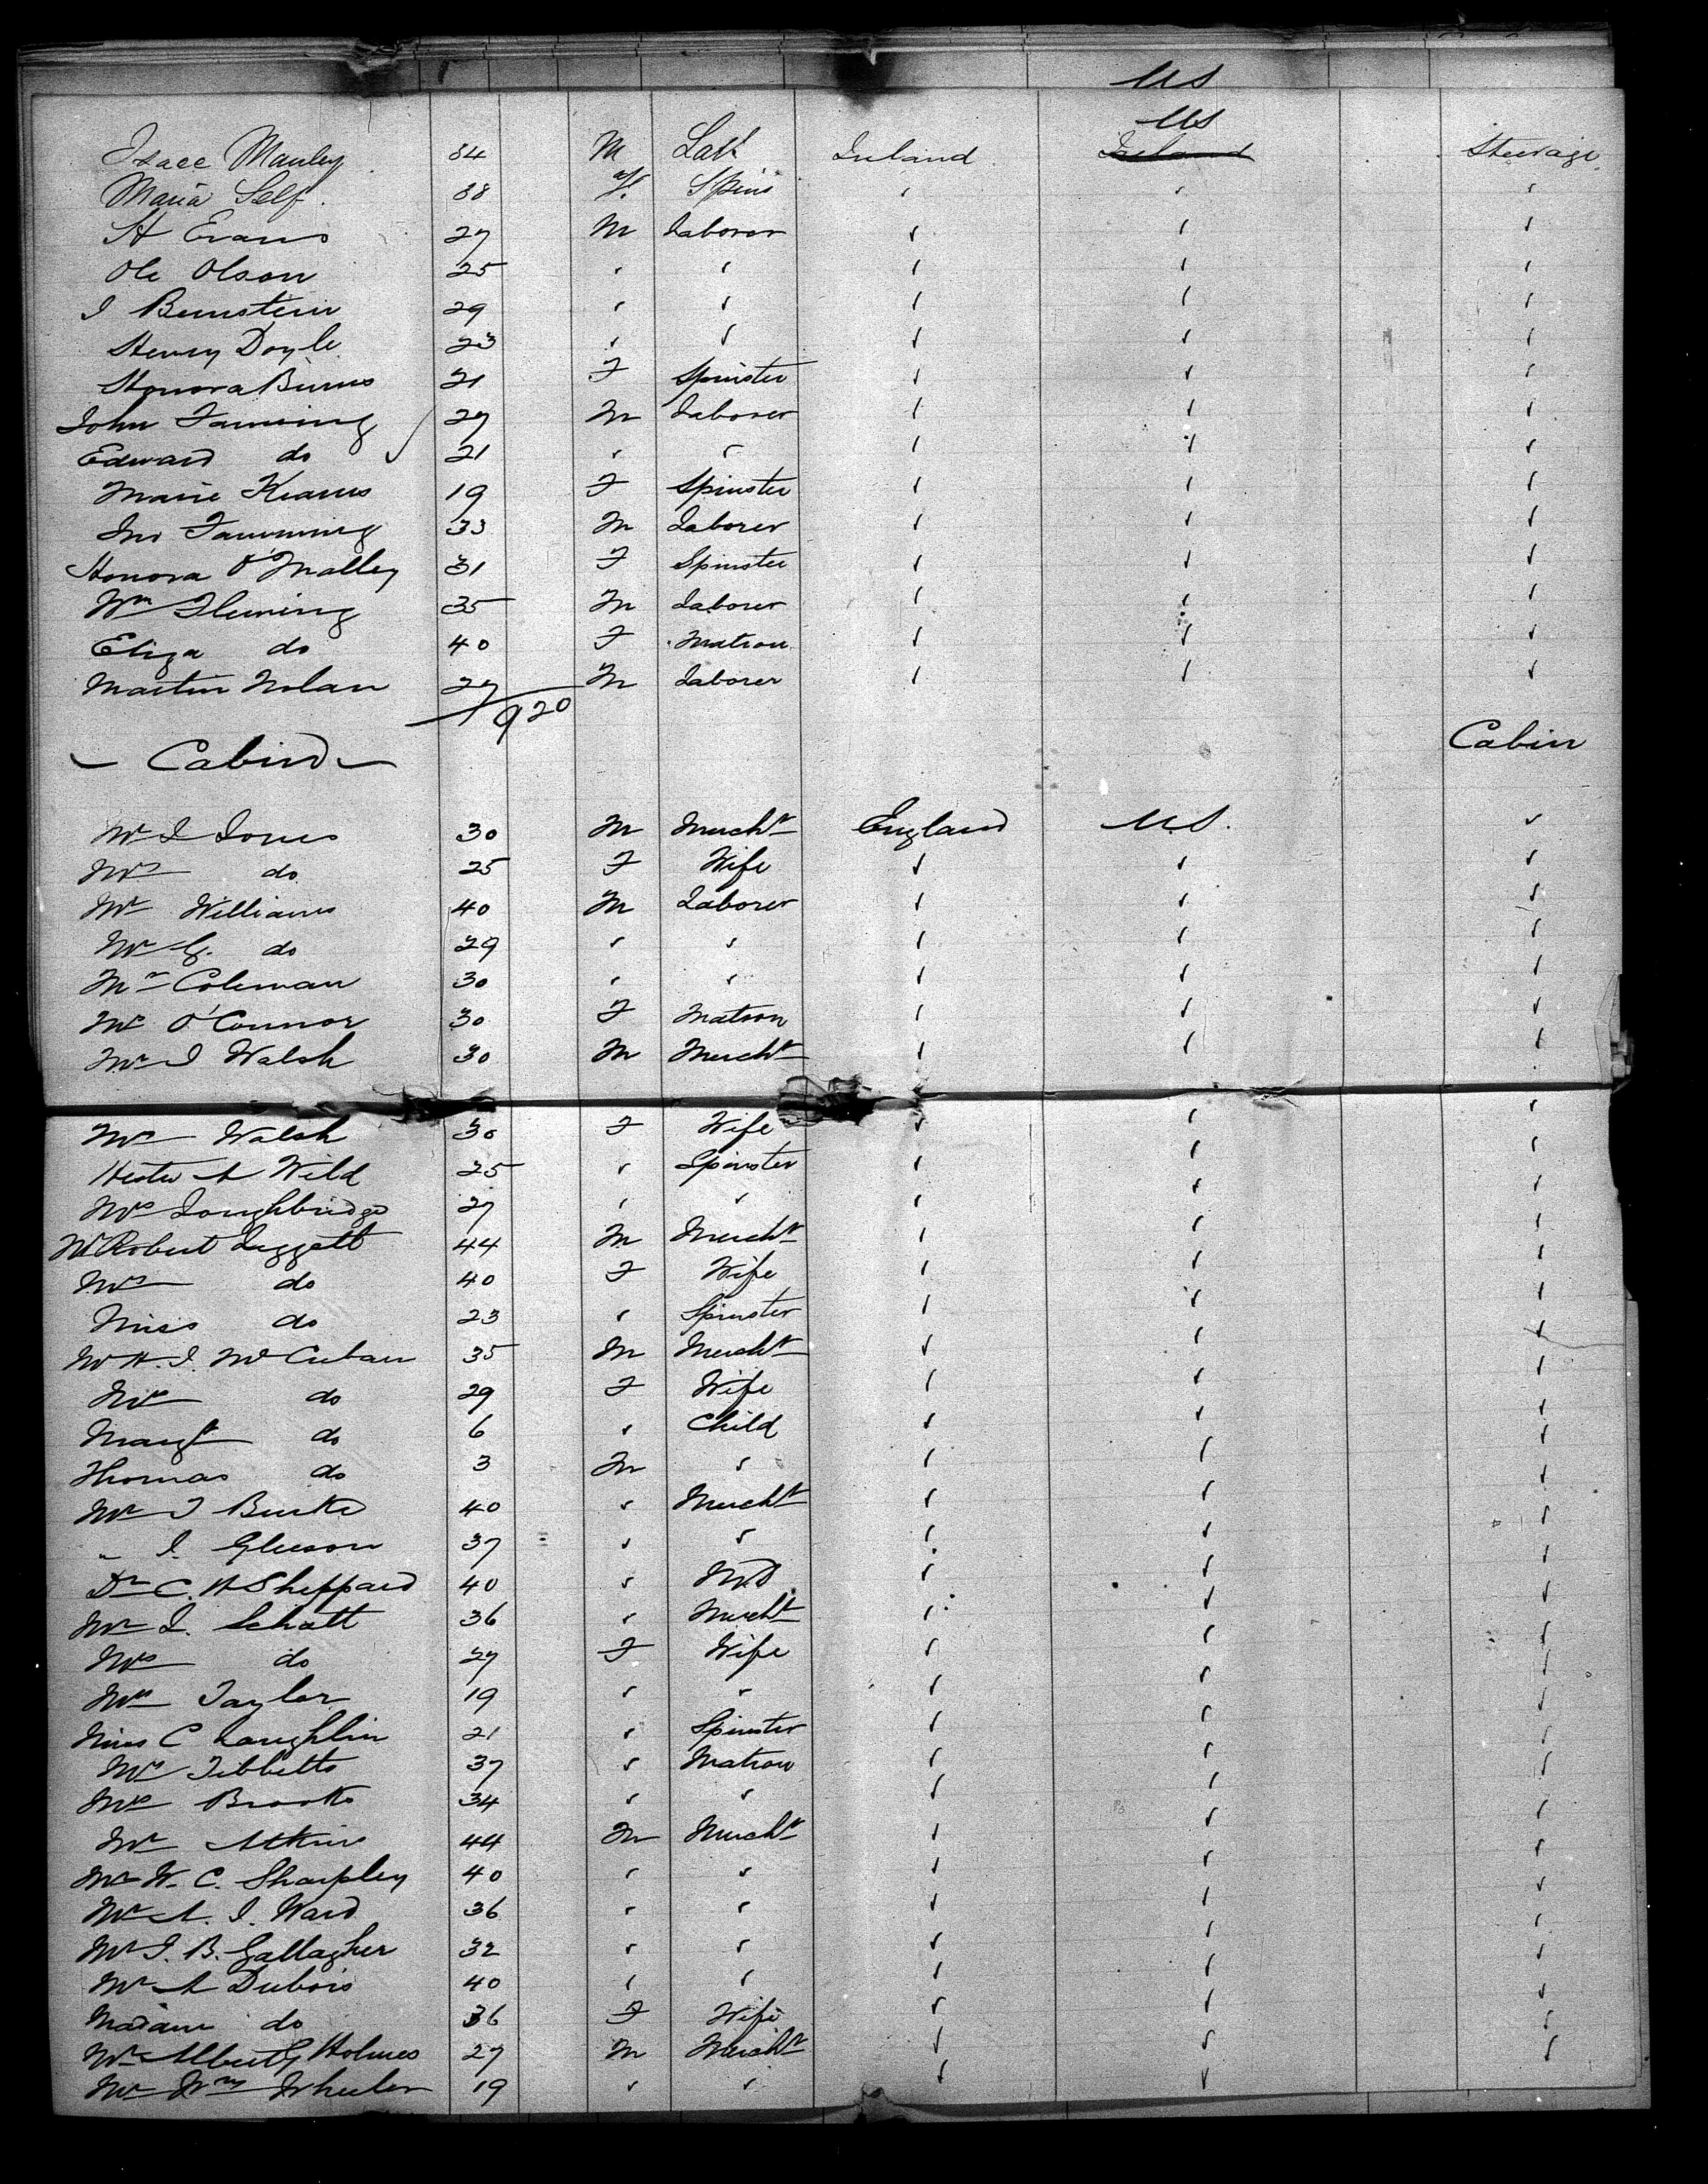 US
US
Isaac Manley 34 M Lab Ireland Ireland Steerage
Maria Self. 38 F. Spins " " "
H Evans 27 M Laborer " " "
Ole Olson 25 " " " " "
I Bernstein 29 " " " " "
Henry Doyle 23 " " " " "
Honora Burns 21 F Spinster " " "
John Fanning 27 M Laborer " " "
Edward do 21 " " " " "
Marie Kearns 19 F Spinster " " "
Jno Fanning 33 M Laborer " " "
Honora O'Malley 31 F Spinster " " "
Wm Fleming 35 M Laborer " " "
Eliza do 40 F Matron " " "
Martin Nolan 27 M Laborer " " "
920
Cabin Cabin
Mr I Jones 30 M Mercht England U.S. "
Mrs do 25 F Wife " " "
Mr Williams 40 M Laborer " " "
Mr G. do 29 " " " " "
Mr Coleman 30 " " " " "
Mrs O'Connor 30 F Matron " " "
Mr I Walsh 30 M Mercht " " "
Mrs Walsh 30 F Wife " " "
Hester A Wild 25 " Spinster " " "
Mrs Loughbridge 27 " " " " "
Mr Robert Leggatt 44 M Mercht " " "
Mrs do 40 F Wife " " "
Miss do 23 " Spinster " " "
Mr H. I. Mc Cuban 35 M Mercht " " "
Mrs do 29 F Wife " " "
Margt do 6 " Child " " "
Thomas do 3 M " " " "
Mr T Burke 40 " Mercht " " "
" I. Gleeson 37 " " " " "
Dr C. H Sheppard 40 " M.D " " "
Mr I. Schott 36 " Mercht " " "
Mrs do 27 F Wife " " "
Mrs Taylor 19 " " " " "
Miss C Laughlin 21 " Spinster " " "
Mrs Tibbetts 37 " Matron " " "
Mrs Brooks 34 " " " " "
Mr Atkins 44 M Mercht " " "
Mr W. C. Sharpley 40 " " " " "
Mr A. I. Ward 36 " " " " "
Mr I. B. Gallagher 32 " " " " "
Mr A Dubois 40 " " " " "
Madam do 36 F Wife " " "
Mr Albert G Holmes 27 M Mercht " " "
Mr Wm Wheeler 19 " " " " "